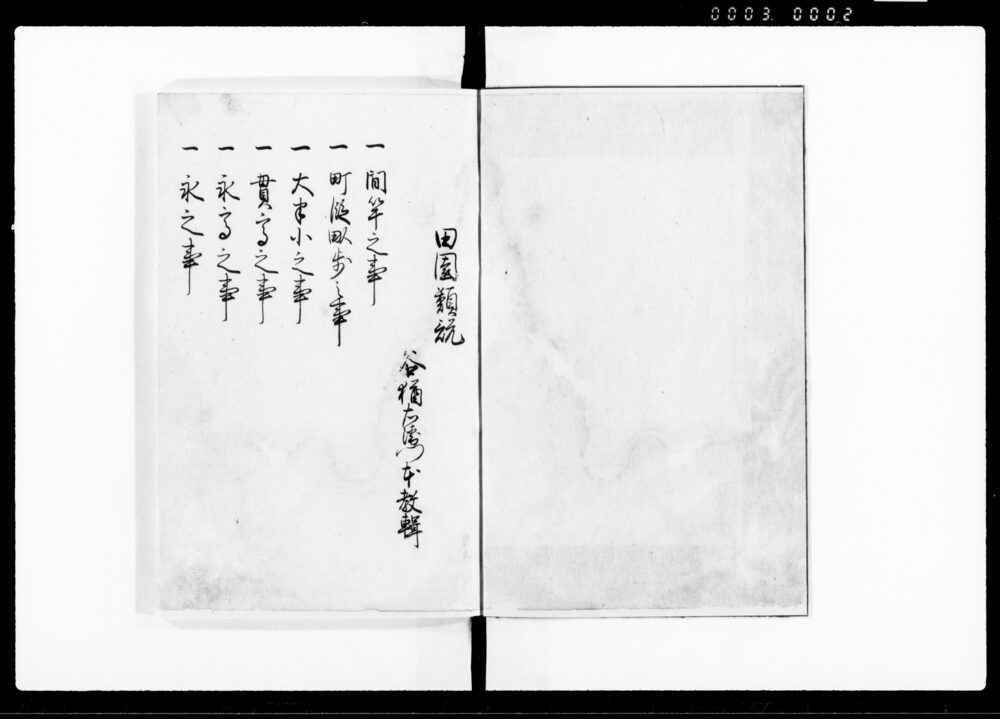 0003 0002
田園類説
谷猶右衛門本教輯
一 間竿之事
一 町段畝歩之事
一 大半小之事
一 貫高之事
一 永高之事
一 永之事